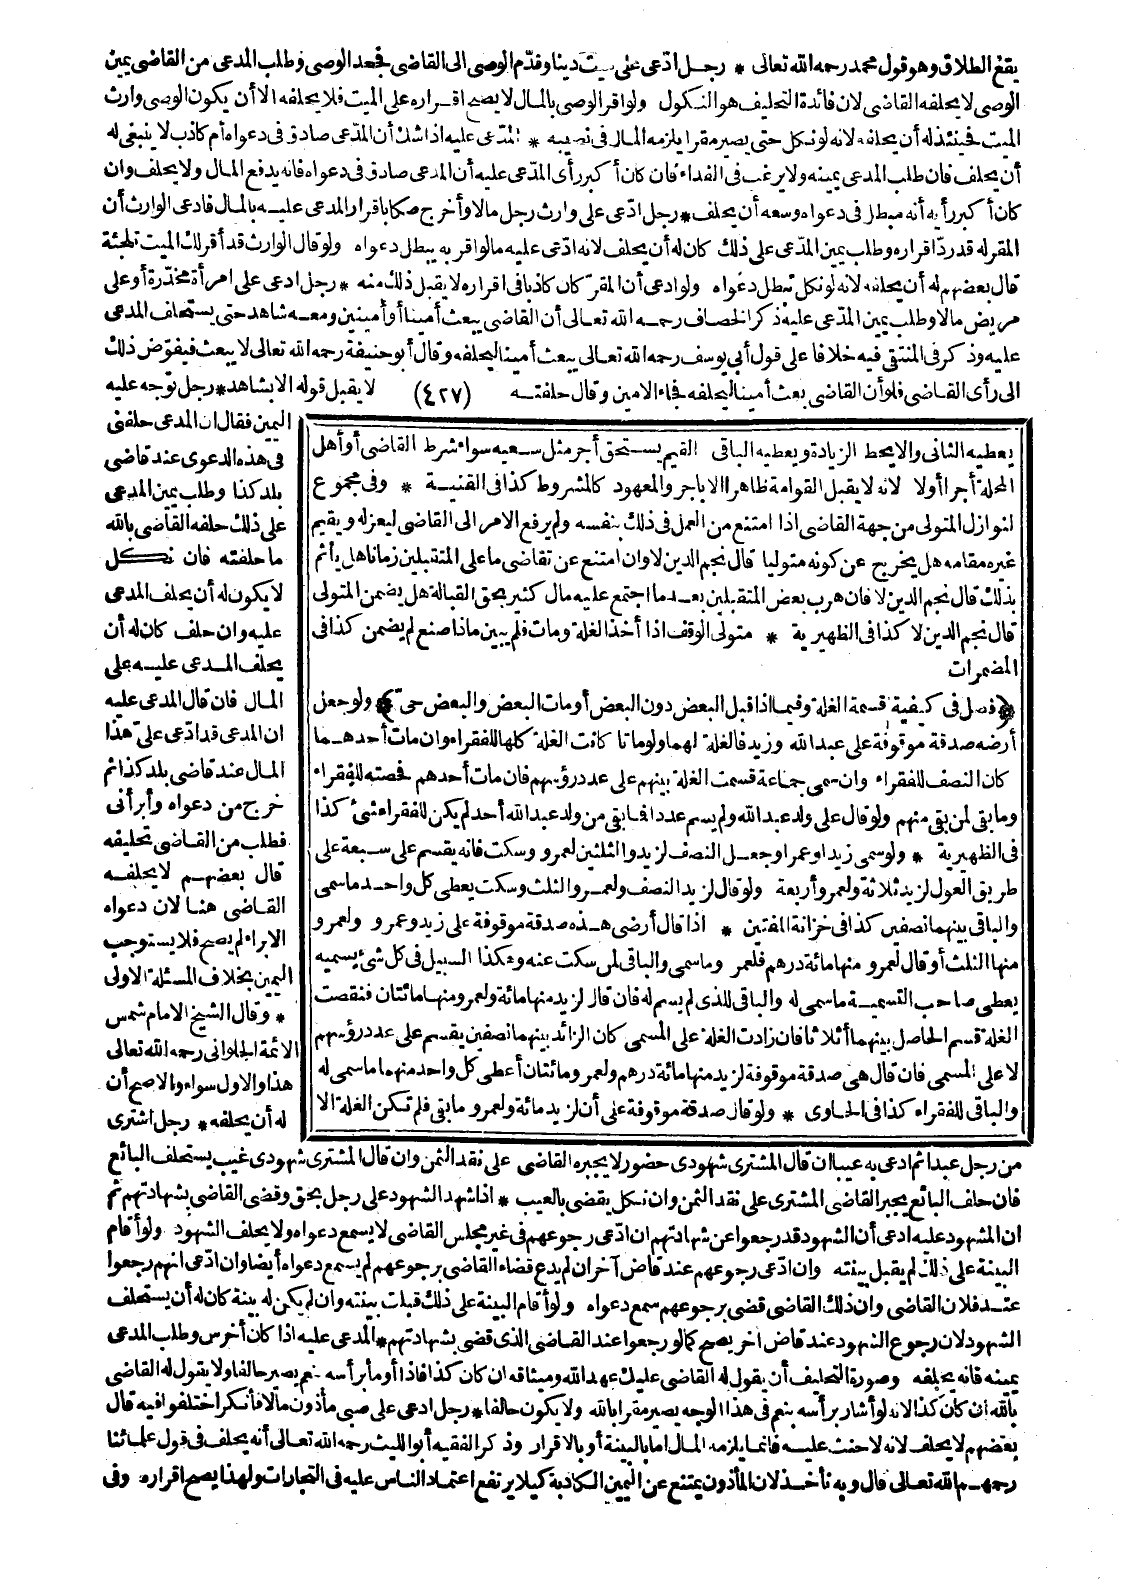 يقع الطلاق وهو قول محمد رحمه الله تعالى * رجل ادّعى على ميت دينا وقدّم الوصى الى القاضى فجحد الوصى وطلب المدعى من القاضى يمين
الوصى لا يحلفه القاضى لان فائدة التحليف هو النكول ولو اقر الوصى بالمال لا يصح اقراره على الميت فلا يحلفه الا أن يكون الوصى وارث
الميت فحينئذ له أن يحلفه لانه لو نكل حتى يصير مقرا يلزمه المال فى نصيبه * المدّعى عليه اذا شك أن المدّعى صادق فى دعواه أم كاذب لا ينبغى له
أن يحلف فان طلب المدعى يمينه ولا يرغب فى الفداء فان كان أكبر رأى المدّعى عليه أن المدعى صادق فى دعواه فانه يدفع المال ولا يحلف وان
كان أكبر رأيه أنه مبطل فى دعواه وسعه أن يحلف * رجل ادّعى على وارث رجل مالا وأخرج صكا باقرار المدعى عليه بالمال فادعى الوارث أن
المقر له قد ردّ اقراره وطلب يمين المدّعى على ذلك كان له أن يحلف لانه ادّعى عليه ما لو اقر به يبطل دعواه ولو قال الوارث قد أقر لك الميت تلجئة
قال بعضهم له أن يحلفه لانه لو نكل تبطل دعواه ولو ادعى أن المقرّ كان كاذبا فى اقراره لا يقبل ذلك منه * رجل ادعى على امرأة مخدّرة أو على
مريض مالا وطلب يمين المدّعى عليه ذكر الخصاف رحمه الله تعالى أن القاضى يبعث أمينا أو أمينين ومعه شاهد حتى يستحلف المدعى
عليه وذكر فى المنتقى فيه خلافا على قول أبى يوسف رحمه الله تعالى يبعث أمينا ليحلفه وقال أبو حنيفة رحمه الله تعالى لا يبعث فيفوّض ذلك
الى رأى القاضى فلو أن القاضى بعث أمينا ليحلفه فجاء الامين وقال حلفته (٤٢٧) لا يقبل قوله الا بشاهد * رجل توجه عليه
اليمين فقال ان المدعى حلفنى
فى هذه الدعوى عند قاضى
بلد كذا وطلب يمين المدعى
على ذلك حلفه القاضى بالله
ما حلفته فان نكل
لا يكون له أن يحلف المدعى
عليه وان حلف كان له أن
يحلف المدعى عليه على
المال فان قال المدعى عليه
ان المدعى قد ادّعى علىّ هذا
المال عند قاضى بلد كذا ثم
خرج من دعواه وأبرأنى
فطلب من القاضى تحليفه
قال بعضهم لا يحلفه
القاضى هنا لان دعواه
الابراء لم يصح فلا يستوجب
اليمين بخلاف المسئلة الاولى
* وقال الشيخ الامام شمس
الائمة الحلوانى رحمه الله تعالى
هذا والاول سواء والاصح أن
له أن يحلفه * رجل اشترى
يعطيه الثانى والا يحط الزيادة ويعطيه الباقى القيم يستحق أجر مثل سعيه سواء شرط القاضى أو أهل
المحلة أجرا أولا لانه لا يقبل القوامة ظاهرا الا باجر والمعهود كالمشروط كذا فى القنية * وفى مجموع
النوازل المتولى من جهة القاضى اذا امتنع من العمل فى ذلك بنفسه ولم يرفع الامر الى القاضى ليعزله ويقيم
غيره مقامه هل يخرج عن كونه متوليا قال نجم الدين لا وان امتنع عن تقاضى ما على المتقبلين زمانا هل يأثم
بذلك قال نجم الدين لا فان هرب بعض المتقبلين بعد ما اجتمع عليه مال كثير بحق القبالة هل يضمن المتولى
قال نجم الدين لا كذا فى الظهيرية * متولى الوقف اذا أخذ الغلة ومات فلم يبين ماذا صنع لم يضمن كذا فى
المضمرات
(فصل فى كيفية قسمة الغلة وفيما اذا قبل البعض دون البعض أو مات البعض والبعض حىّ) * ولو جعل
أرضه صدقة موقوفة على عبد الله وزيد فالغلة لهما ولو ماتا كانت الغلة كلها للفقراء وان مات أحدهما
كان النصف للفقراء وان سمى جماعة قسمت الغلة بينهم على عدد رؤسهم فان مات أحدهم فحصته للفقراء
وما بقى لمن بقى منهم ولو قال على ولد عبد الله ولم يسم عددا فما بقى من ولد عبد الله أحد لم يكن للفقراء شئ كذا
فى الظهيرية * ولو سمى زيدا وعمرا وجعل النصف لزيد والثلثين لعمرو وسكت فانه يقسم على سبعة على
طريق العول لزيد ثلاثة ولعمرو أربعة ولو قال لزيد النصف ولعمرو الثلث وسكت يعطى كل واحد ما سمى
والباقى بينهما نصفين كذا فى خزانة المفتين * اذا قال أرضى هذه صدقة موقوفة على زيد وعمرو ولعمرو
منها الثلث أو قال لعمرو منها مائة درهم فلعمرو ما سمى والباقى لمن سكت عنه وهكذا السبيل فى كل شئ يسميه
يعطى صاحب التسمية ما سمى له والباقى للذى لم يسم له فان قال لزيد منها مائة ولعمرو منها مائتان فنقصت
الغلة قسم الحاصل بينهما أثلاثا فان زادت الغلة على المسمى كان الزائد بينهما نصفين يقسم على عدد رؤسهم
لا على المسمى فان قال هى صدقة موقوفة لزيد منها مائة درهم ولعمرو مائتان أعطى كل واحد منهما ما سمى له
والباقى للفقراء كذا فى الحاوى * ولو قال صدقة موقوفة على أن لزيد مائة ولعمرو ما بقى فلم تكن الغلة الا
من رجل عبدا ثم ادعى به عيبا ان قال المشترى شهودى حضور لا يجبره القاضى على نقد الثمن وان قال المشترى شهودى غيب يستحلف البائع
فان حلف البائع يجبر القاضى المشترى على نقد الثمن وان نكل يقضى بالعيب * اذا شهد الشهود على رجل بحق وقضى القاضى بشهادتهم ثم
ان المشهود عليه ادعى أن الشهود قد رجعوا عن شهادتهم ان ادّعى رجوعهم فى غير مجلس القاضى لا يسمع دعواه ولا يحلف الشهود ولو أقام
البينة على ذلك لم يقبل بينته وان ادّعى رجوعهم عند قاض آخر ان لم يدع قضاء القاضى برجوعهم لم يسمع دعواه أيضا وان ادّعى انهم رجعوا
عند فلان القاضى وان ذلك القاضى قضى برجوعهم سمع دعواه ولو أقام البينة على ذلك قبلت بينته وان لم يكن له بينة كان له أن يستحلف
الشهود لان رجوع الشهود عند قاض آخر يصح كما لو رجعوا عند القاضى الذى قضى بشهادتهم * المدعى عليه اذا كان أخرس وطلب المدعى
يمينه فانه يحلفه وصورة التحليف أن يقول له القاضى عليك عهد الله وميثاقه ان كان كذا فاذا أومأ برأسه نعم يصير حالفا ولا يقول له القاضى
بالله ان كان كذا لانه لو أشار برأسه بنعم فى هذا الوجه يصير مقرا بالله ولا يكون حالفا * رجل ادعى على صبى مأذون مالا فأنكر اختلفوا فيه قال
بعضهم لا يحلف لانه لا حنث عليه فانما يلزمه المال اما بالبينة أو بالاقرار وذكر الفقيه أبو الليث رحمه الله تعالى أنه يحلف فى قول علمائنا
رحمهم الله تعالى قال وبه نأخذ لان المأذون يمتنع عن اليمين الكاذبة كيلا يرتفع اعتماد الناس عليه فى التجارات ولهذا يصح اقراره وفى